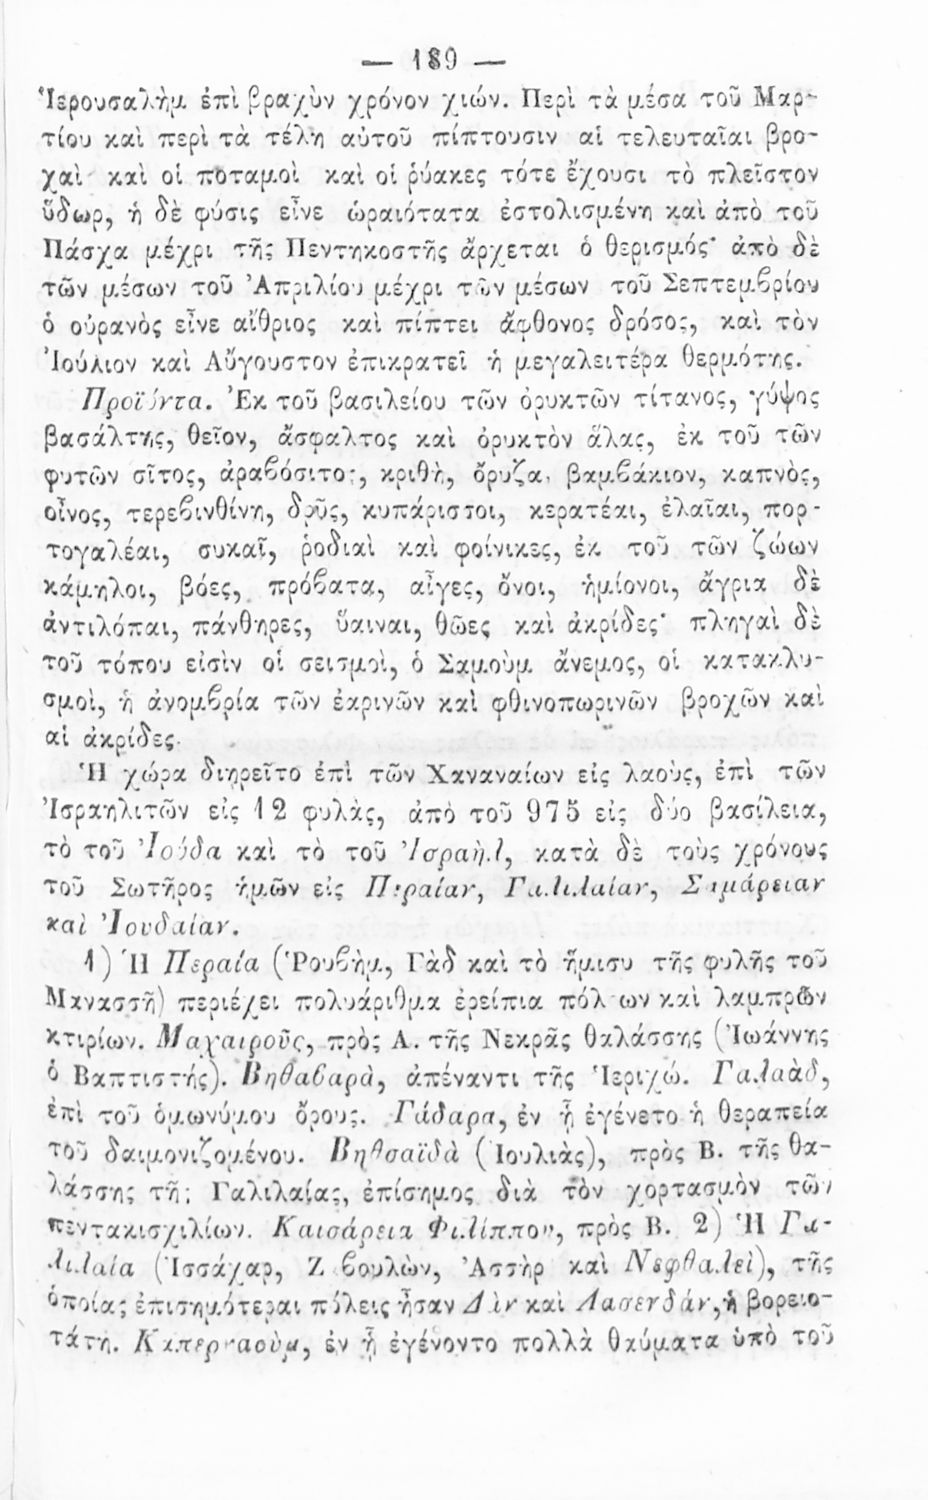 — 189 —
Ἱερουσαλὴμ ἐπὶ βραχὺν χρόνον χιών. Περὶ τὰ μέσα τοῦ Μαρ-
τίου καὶ περὶ τὰ τέλη αὐτοῦ πίπτουσιν αἱ τελευταῖαι βρο-
χαὶ καὶ οἱ ποταμοὶ καὶ οἱ ῥύακες τότε ἔχουσι τὸ πλεῖστον
ὕδωρ, ἡ δὲ φύσις εἶνε ὡραιότατα ἐστολισμένη καὶ ἀπὸ τοῦ
Πάσχα μέχρι τῆς Πεντηκοστῆς ἄρχεται ὁ θερισμός· ἀπὸ δὲ
τῶν μέσων τοῦ Ἀπριλίου μέχρι τῶν μέσων τοῦ Σεπτεμβρίου
ὁ οὐρανὸς εἶνε αἴθριος καὶ πίπτει ἄφθονος δρόσος, καὶ τὸν
Ἰούλιον καὶ Αὔγουστον ἐπικρατεῖ ἡ μεγαλειτέρα θερμότης.
Προϊόντα. Ἐκ τοῦ βασιλείου τῶν ὀρυκτῶν τίτανος, γύψος
βασάλτης, θεῖον, ἄσφαλτος καὶ ὀρυκτὸν ἅλας, ἐκ τοῦ τῶν
φυτῶν σῖτος, ἀραβόσιτος, κριθὴ, ὄρυζα, βαμβάκιον, καπνὸς,
οἶνος, τερεβινθίνη, δρῦς, κυπάρισσοι, κερατέαι, ἐλαῖαι, πορ-
τογαλέαι, συκαῖ, ῥοδιαὶ καὶ φοίνικες, ἐκ τοῦ τῶν ζώων
κάμηλοι, βόες, πρόβατα, αἶγες, ὄνοι, ἡμίονοι, ἄγρια δὲ
ἀντιλόπαι, πάνθηρες, ὕαιναι, θῶες καὶ ἀκρίδες· πληγαὶ δὲ
τοῦ τόπου εἰσὶν οἱ σεισμοὶ, ὁ Σαμοὺμ ἄνεμος, οἱ κατακλυ-
σμοὶ, ἡ ἀνομβρία τῶν ἐαρινῶν καὶ φθινοπωρινῶν βροχῶν καὶ
αἱ ἀκρίδες.
Ἡ χώρα διῃρεῖτο ἐπὶ τῶν Χαναναίων εἰς λαοὺς, ἐπὶ τῶν
Ἰσραηλιτῶν εἰς 12 φυλὰς, ἀπὸ τοῦ 975 εἰς δύο βασίλεια,
τὸ τοῦ Ἰούδα καὶ τὸ τοῦ Ἰσραὴλ, κατὰ δὲ τοὺς χρόνους
τοῦ Σωτῆρος ἡμῶν εἰς Περαίαν, Γαλιλαίαν, Σαμάρειαν
καὶ Ἰουδαίαν.
1) Ἡ Περαία (Ῥουβὴμ, Γὰδ καὶ τὸ ἥμισυ τῆς φυλῆς τοῦ
Μανασσῆ) περιέχει πολυάριθμα ἐρείπια πόλεων καὶ λαμπρῶν
κτιρίων. Μαχαιροῦς, πρὸς Α. τῆς Νεκρᾶς θαλάσσης (Ἰωάννης
ὁ Βαπτιστής). Βηθαβαρὰ, ἀπέναντι τῆς Ἱεριχώ. Γαλαὰδ,
ἐπὶ τοῦ ὁμωνύμου ὄρους. Γάδαρα, ἐν ᾗ ἐγένετο ἡ θεραπεία
τοῦ δαιμονιζομένου. Βηθσαϊδὰ (Ἰουλιὰς), πρὸς Β. τῆς θα-
λάσσης τῆς Γαλιλαίας, ἐπίσημος διὰ τὸν χορτασμὸν τῶν
πεντακισχιλίων. Καισάρεια Φιλίππου, πρὸς Β. 2) Ἡ Γα-
λιλαία (Ἰσσάχαρ, Ζαβουλὼν, Ἀσσὴρ καὶ Νεφθαλεὶ), τῆς
ὁποίας ἐπισημότεραι πόλεις ἦσαν Δὰν καὶ Λασενδάν, ἡ βορειο-
τάτη. Καπερναοὺμ, ἐν ᾗ ἐγένοντο πολλὰ θαύματα ὑπὸ τοῦ